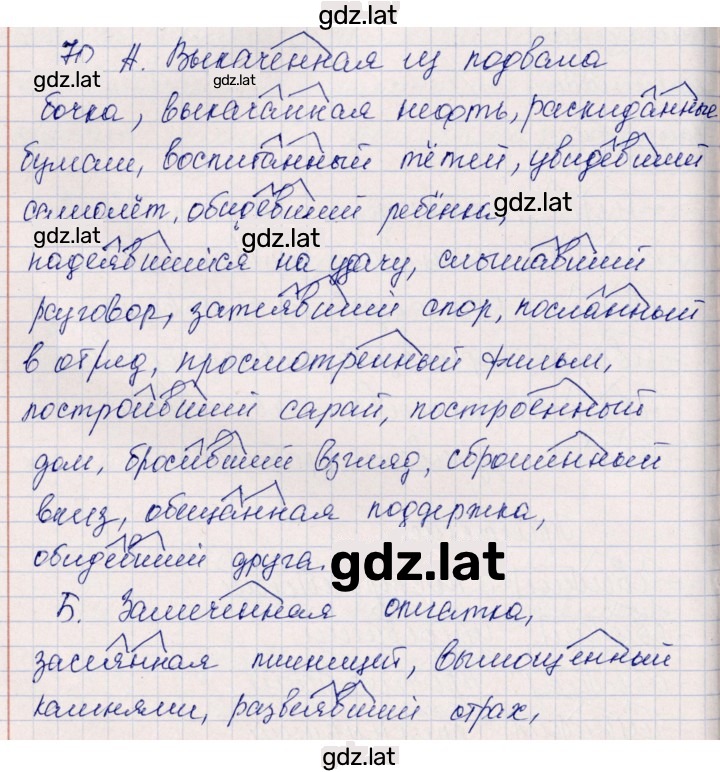 gdz.lat
70 А. Выкаченная из подвала
gdz.lat
gdz.lat
бочка, выкачанная нефть, раскиданные
бумаги, воспитанный тётей, увидевший
самолёт, обидевший ребёнка,
gdz.lat
gdz.lat
gdz.lat
надеявшийся на удачу, слышавший
разговор, затеявший спор, посланный
в отряд, просмотренный фильм,
построивший сарай, построенный
дом, бросивший взгляд, сброшенный
вниз, обещанная поддержка,
обидевший друга.
gdz.lat
Б. Замеченная опечатка,
засеянная пшеницей, вымощенный
камнями, развеявший страх,
gdz.lat